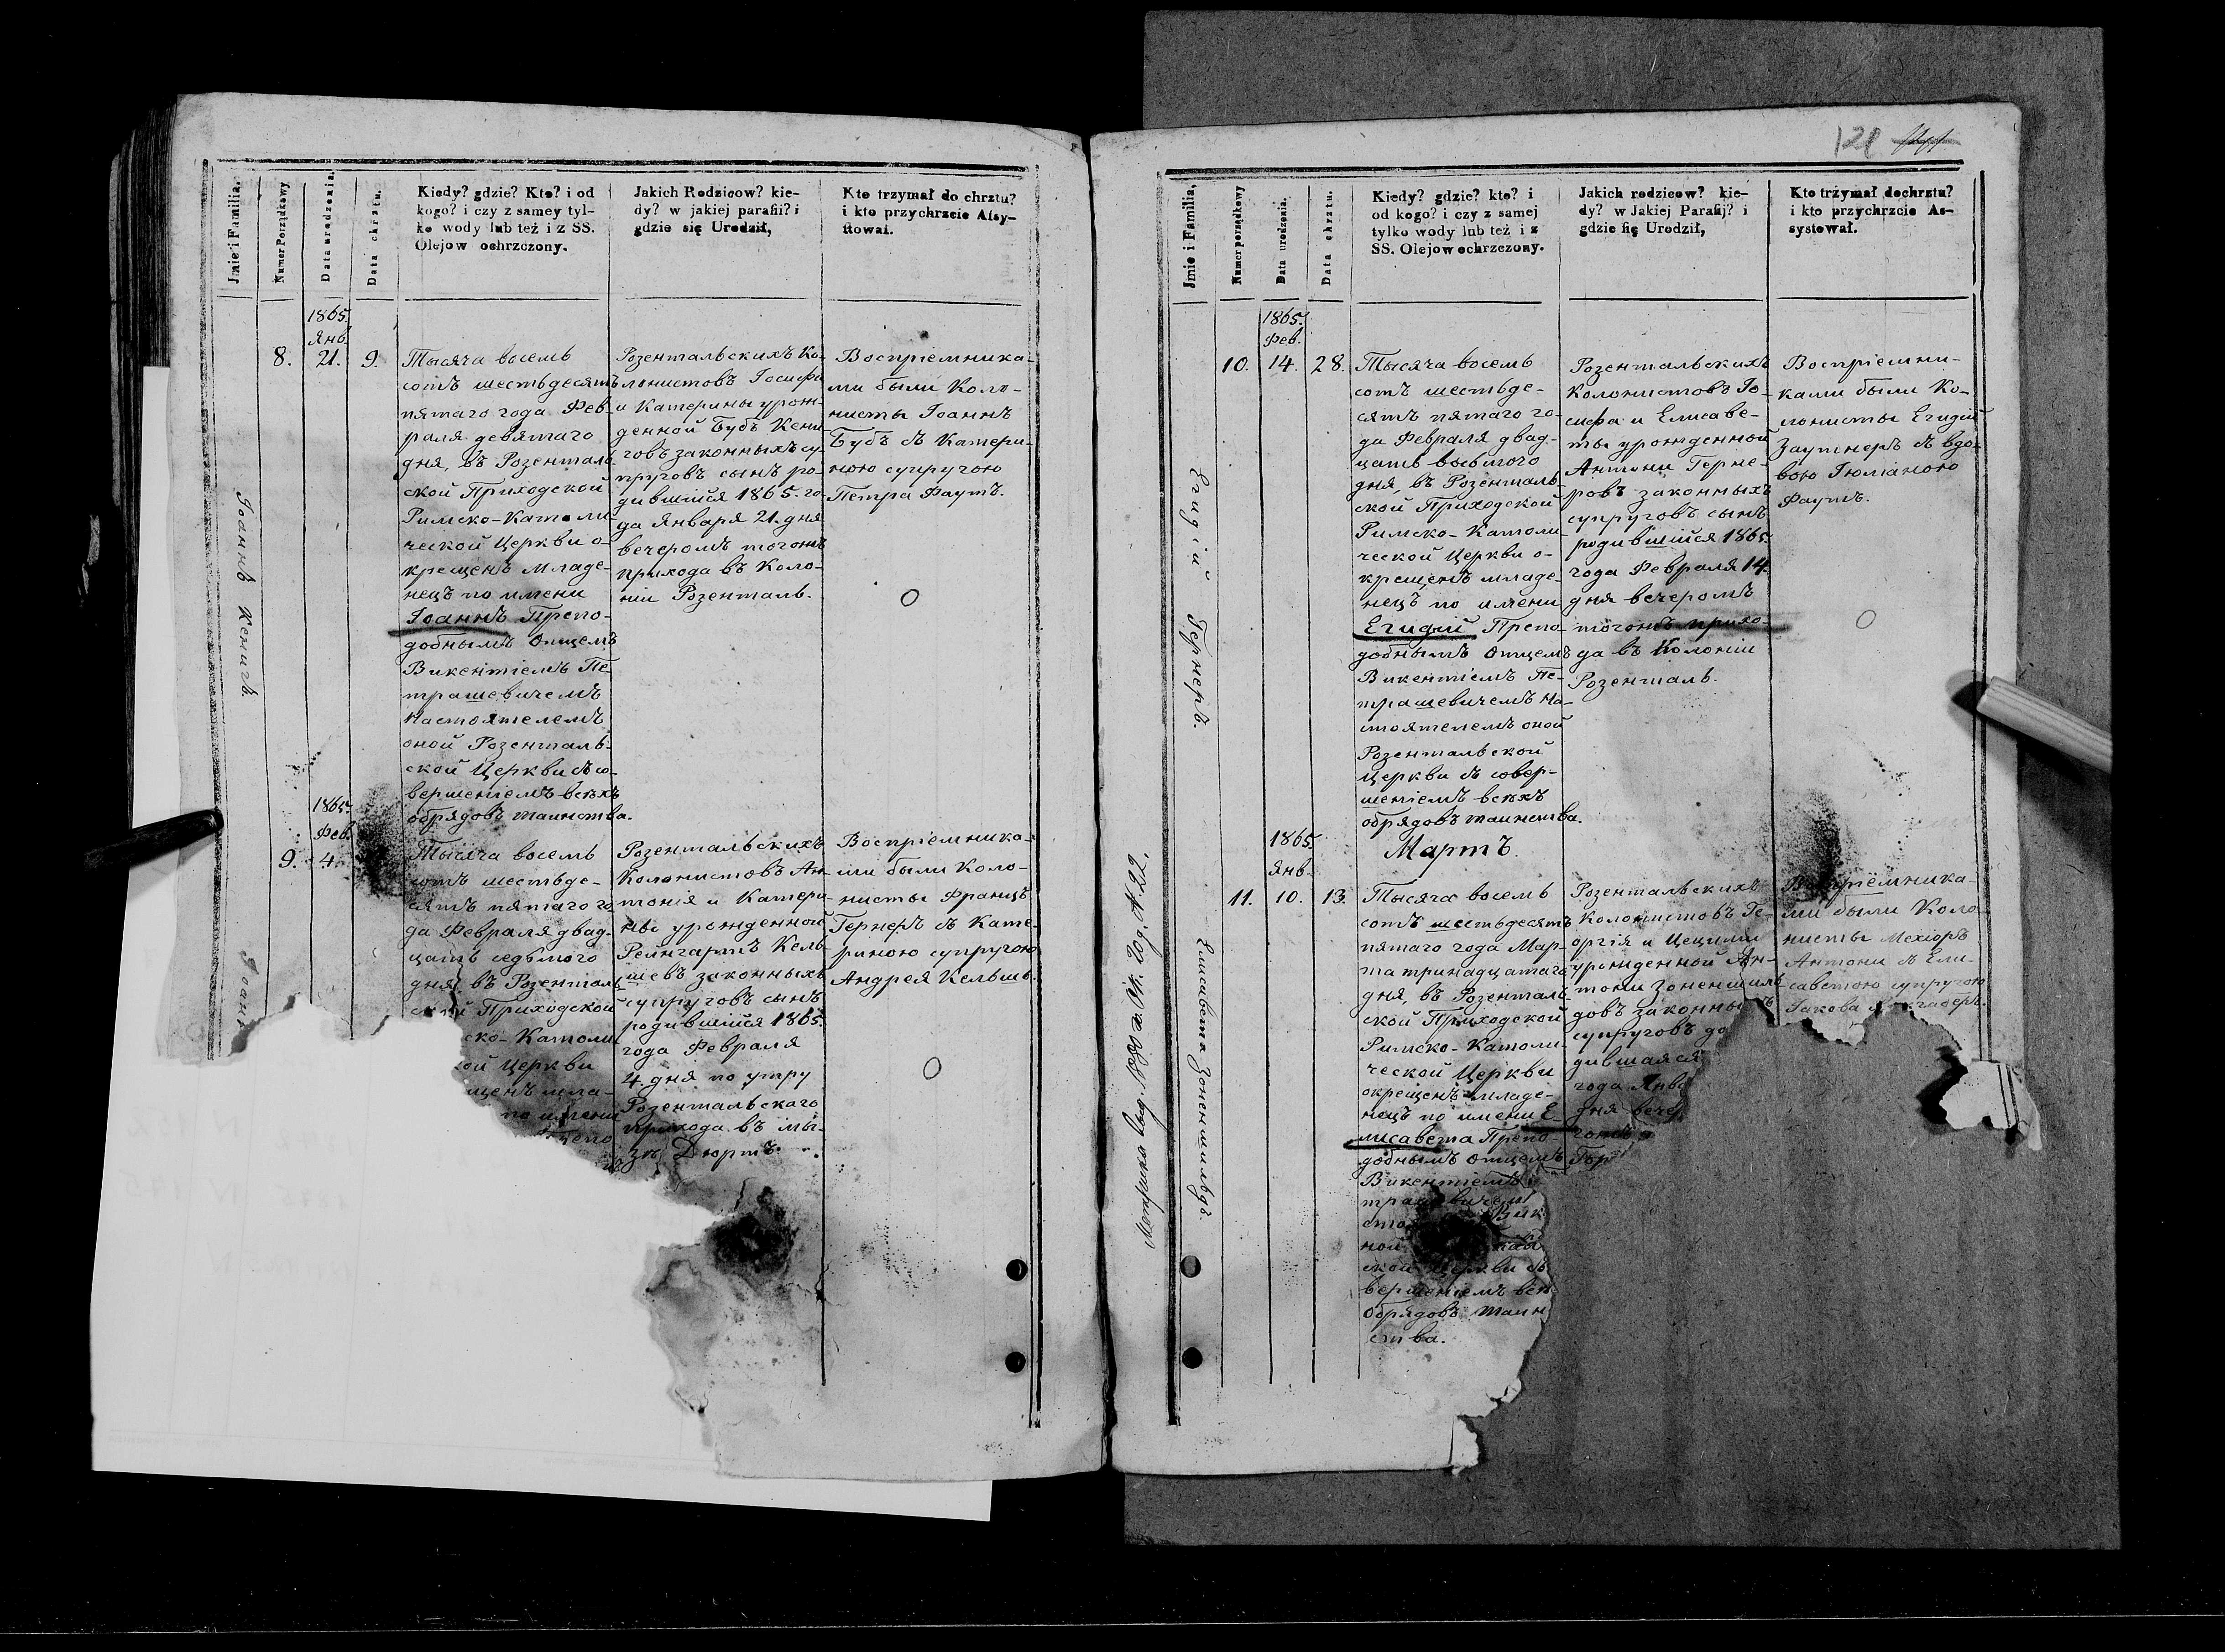 Jmie i Familia.
Numer Porządkowy
Data urodzenia.
Data chrztu.
Kiedy? gdzie? Kto? i od
kogo? i czy z samey tyl-
ko wody lub też i z SS.
Olejow ochrzczony.
Jakich Rodzicow? kie-
dy? w jakiej parafii? i
gdzie się Urodził,
Kto trzymał do chrztu?
i kto przychrzcie Assy-
stował.
Іоаннъ Кенигъ
1865.
Янв.
8. 21. 9.
Тысяча восемь
сотъ шестьдесятъ
пятаго года Фев-
раля девятаго
дня, въ Розенталь-
ской Приходской
Римско-Католи-
ческой Церкви о-
крещенъ младе-
нецъ по имени
Іоаннъ Препо-
добнымъ Отцемъ
Викентіемъ Пе-
трашевичемъ
Настоятелемъ
оной Розенталь-
ской Церкви съ со-
вершеніемъ всѣхъ
обрядовъ таинства.
Розентальскихъ Ко-
лонистовъ Іосифа
и Катерины урож-
денной Бубъ Кени-
говъ законныхъ су-
пруговъ сынъ ро-
дившійся 1865. го-
да Января 21. дня
вечеромъ тогожъ
прихода въ Коло-
ніи Розенталь.
Воспріемника-
ми были Коло-
нисты Іоаннъ
Бубъ съ Катери-
ною супругою
Петра Фаутъ.
1865.
Фев.
9. 4.
Іоан
Тысяча восемь
сотъ шестьде-
сятъ пятаго го-
да Февраля двад-
цать седьмого
дня, въ Розенталь-
ской Приходской
ско-Католи
ой Церкви
щенъ мла-
по имени
Препо
Розентальскихъ
Колонистовъ Ан-
тонія и Катери-
ны урожденной
Рейнгартъ Кель-
шевъ законныхъ
супруговъ сынъ
родившійся 1865.
года Февраля
4. дня по утру
Розентальскаго
прихода въ мы-
зѣ Дюртъ.
Воспріемника-
ми были Коло-
нисты Францъ
Гернеръ съ Кате-
риною супругою
Андрея Кельшъ.
121
Jmie i Familia.
Numer porządkowy
Data urodzenia.
Data chrztu.
Kiedy? gdzie? kto? i
od kogo? i czy z samej
tylko wody lub też i z
SS. Olejow ochrzczony.
Jakich rodzicow? kie-
dy? w Jakiej Parafij? i
gdzie się Urodził,
Kto trzymał dochrztu?
i kto przychrzcie As-
systował.
Егидій Гернеръ.
1865.
Фев.
10. 14. 28.
Тысяча восемь
сотъ шестьде-
сятъ пятаго го-
да Февраля двад-
цать восьмого
дня, въ Розенталь-
ской Приходской
Римско-Католи-
ческой Церкви о-
крещенъ младе-
нецъ по имени
Егидій Препо-
добнымъ Отцемъ
Викентіемъ Пе-
трашевичемъ На-
стоятелемъ оной
Розентальской
Церкви съ совер-
шеніемъ всѣхъ
обрядовъ таинства.
Розентальскихъ
Колонистовъ Іо-
сифа и Елисаве-
ты урожденной
Антони Герне-
ровъ законныхъ
супруговъ сынъ
родившійся 1865.
года Февраля 14.
дня вечеромъ
тогожъ прихо-
да въ Колоніи
Розенталь.
Воспріемни-
ками были Ко-
лонисты Егидій
Заутнеръ съ вдо-
вою Юліаною
Фаутъ.
Мартъ.
1865.
Янв.
11. 10. 13.
Елисавета Зоненшильдъ.
Тысяча восемь
сотъ шестьдесятъ
пятаго года Мар-
та тринадцатаго
дня, въ Розенталь-
ской Приходской
Римско-Католи-
ческой Церкви
окрещенъ младе-
нецъ по имени Е-
лисавета Препо-
добнымъ Отцемъ
Викентіемъ
ной
ской Церкви съ
вершеніемъ всѣ
обрядовъ таин
ства.
Розентальскихъ
Колонистовъ Ге-
оргія и Цециліи
урожденной Ан-
тони Зоненшиль-
довъ законны
супруговъ до
дившаяся
года Янва
дня вечер
гожъ
Воспріемника-
ми были Коло-
нисты Мехіоръ
Антони съ Ели-
саветою супругою
Іакова